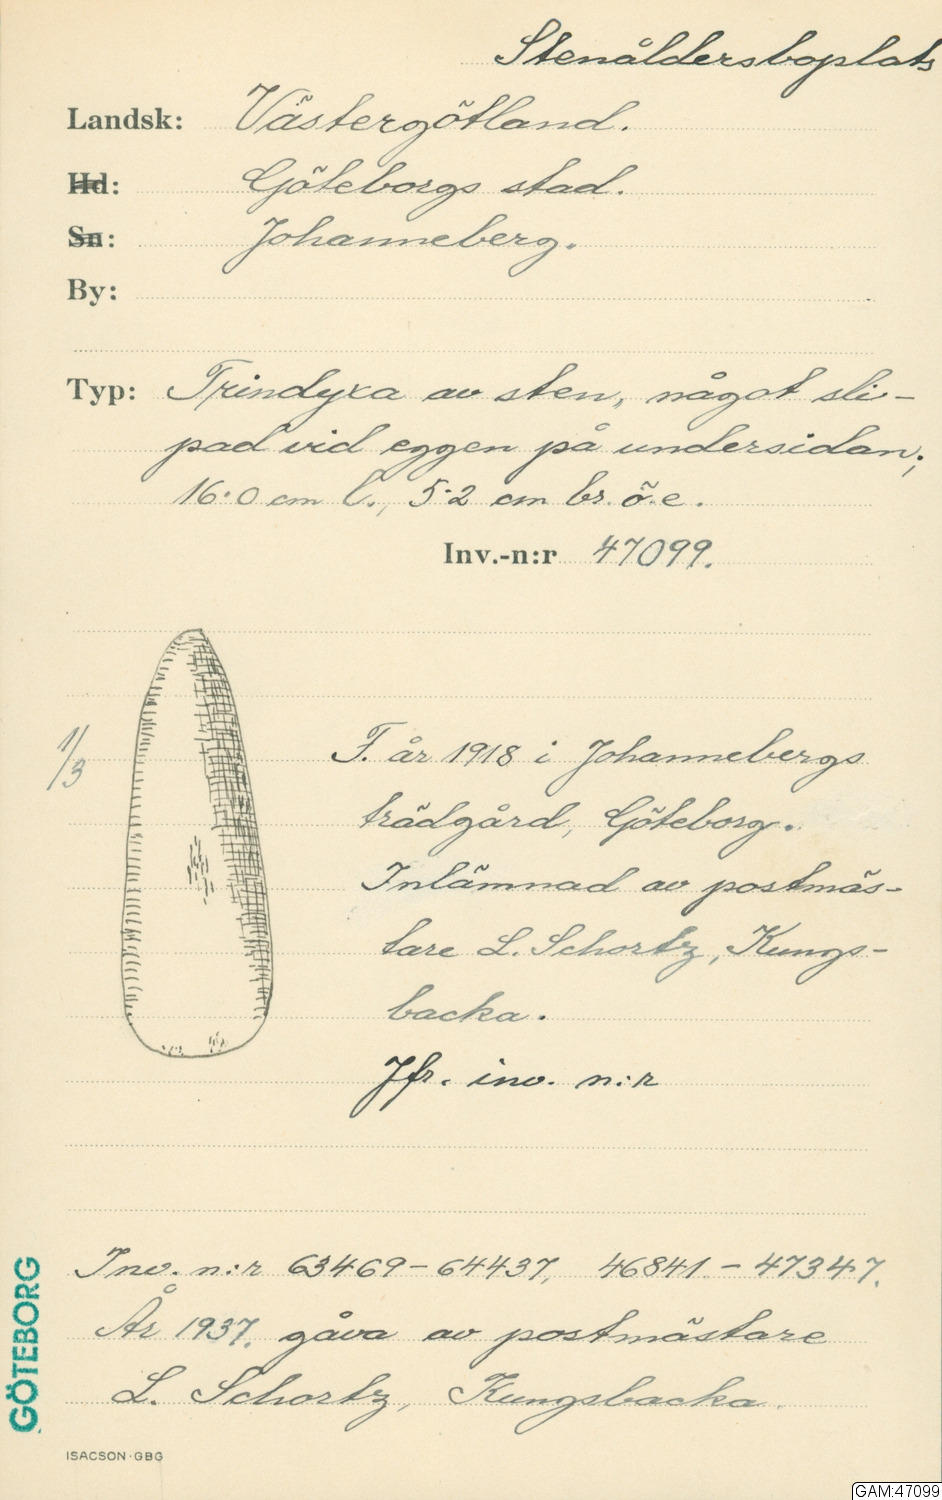 Stenåldersboplats
Landsk: Västergötland.
Hd: Göteborgs stad.
Sn: Johanneberg.
By:
Typ: Trindyxa av sten, något sli-
pad vid eggen på undersidan;
16.0 cm l., 5.2 cm br. ö. e.
Inv.-n:r 47099.
1/3
F. år 1918 i Johannebergs
trädgård, Göteborg.
Inlämnad av postmäs-
tare L. Schortz, Kungs-
backa.
Jfr. inv. n:r
Inv. n:r 63469-64437, 46841-47347.
År 1937. gåva av postmästare
L. Schortz, Kungsbacka.
GÖTEBORG
ISACSON·GBG
GAM:47099